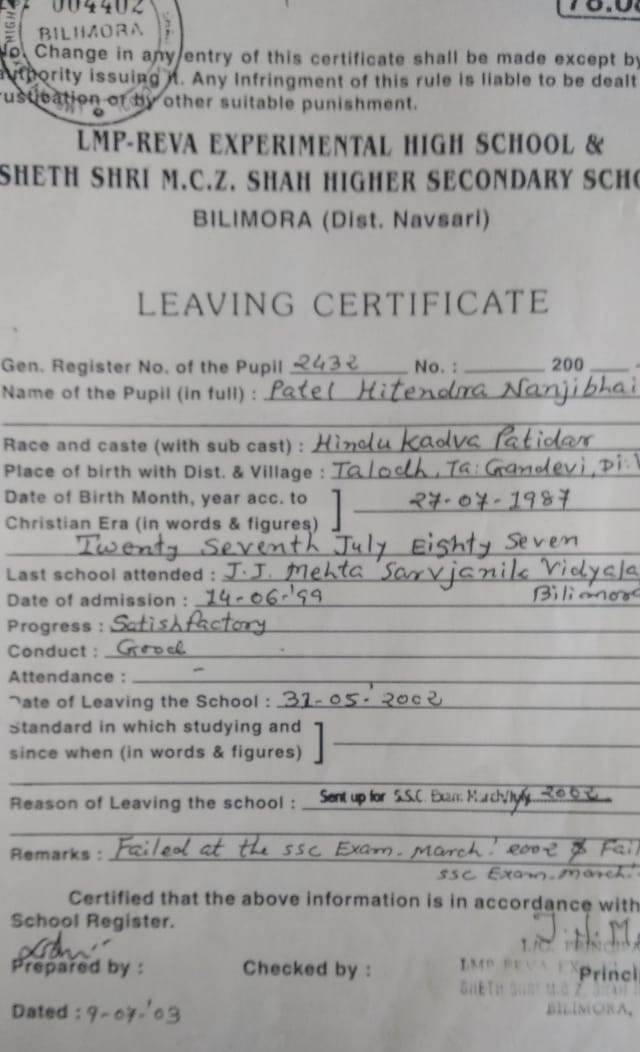 004402
BILIMORA
No. Change in any entry of this certificate shall be made except by
authority issuing it. Any Infringment of this rule is liable to be dealt
rustication or by other suitable punishment.
LMP-REVA EXPERIMENTAL HIGH SCHOOL &
SHETH SHRI M.C.Z. SHAH HIGHER SECONDARY SCHO
BILIMORA (Dist. Navsari)
LEAVING CERTIFICATE
Gen. Register No. of the Pupil 2432 No. : 200
Name of the Pupil (in full) : Patel Hitendra Nanjibhai
Race and caste (with sub cast) : Hindu Kadva Patidar
Place of birth with Dist. & Village : Talodh, Ta: Gandevi, Di:
Date of Birth Month, year acc. to
Christian Era (in words & figures) ] 27-07-1987
Twenty Seventh July Eighty Seven
Last school attended : J.J. Mehta Sarvjanik Vidyala
Date of admission : 14-06-'99 Bilimora
Progress : Satishfactory
Conduct : Good
Attendance : -
Date of Leaving the School : 31-05-'2002
Standard in which studying and
since when (in words & figures) ]
Reason of Leaving the school : Sent up for S.S.C. Exam. March 2002
Remarks : Failed at the SSC Exam. March.' 2002 & Fail
SSC Exam. March.'
Certified that the above information is in accordance with
School Register.
J.H.M.
Prepared by : Checked by : Princi
LMP REVA EX
SHETH SHRI M C Z
BILIMORA,
Dated : 9-07-'03